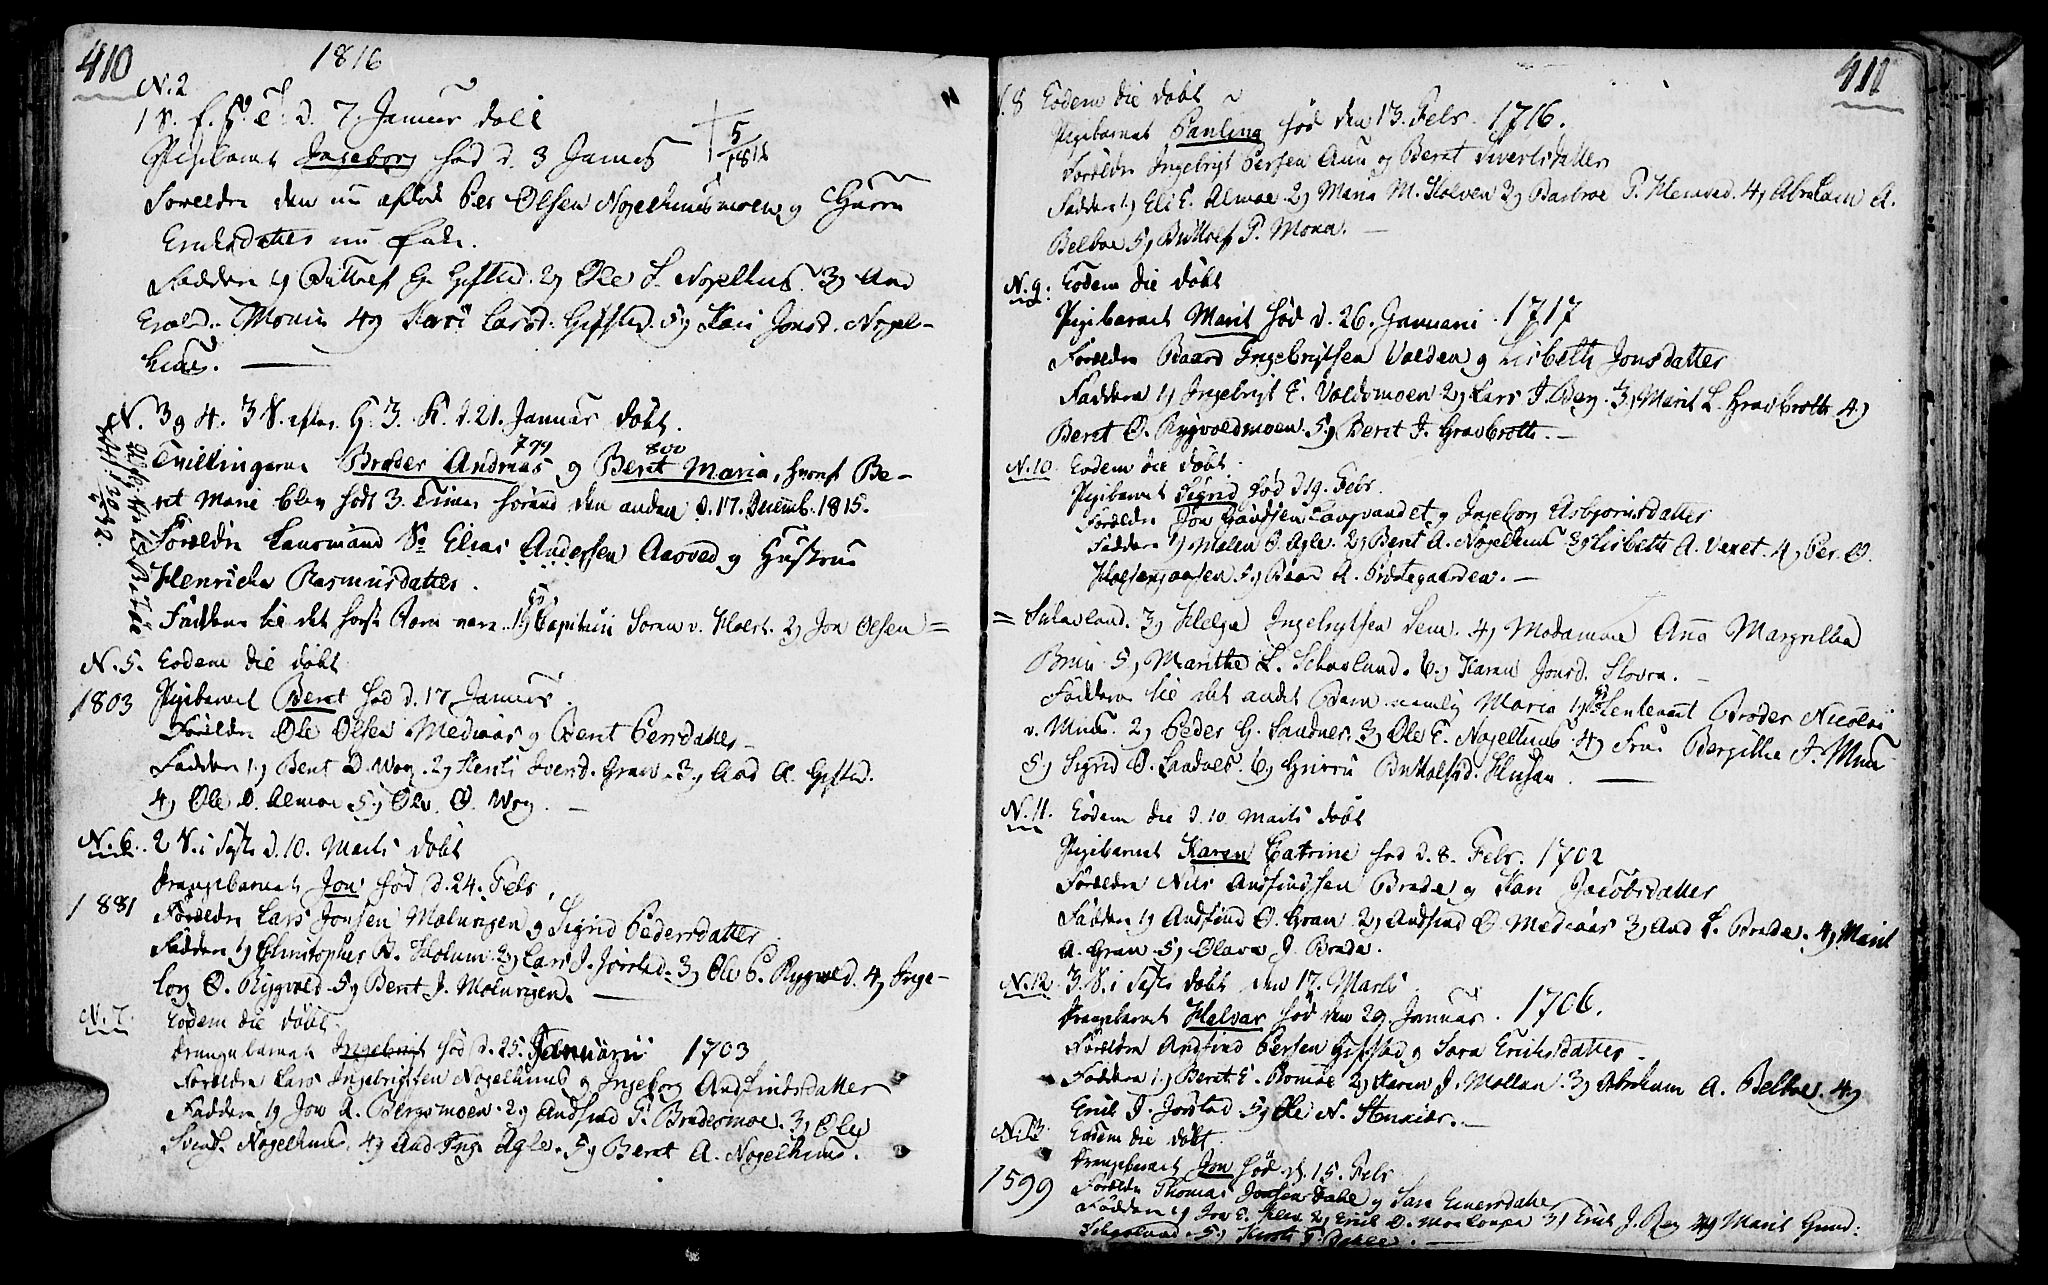 410
1816
N. 2
1 S. f. H. 3 K. d. 7. Januar døbt
Pigebarnet Ingeborg fød d. 3 Januar † 5/1816
Forældre den nu afdøde Per Olsen Nogelhuusmoen og Guru
Eriksdatter nu Enke.
Faddere 1) Buttolf G. Gifsted. 2) Ole L. Nogelhus. 3) And
Monis 4) Kari Larsd. Gifsted. 5) Kari Jonsd. Nogel-
huus.
N. 3 og 4. 3 S. efter H. 3. K. d. 21. Januar døbt.
799 800
Tvillingerne Brøder Andreas og Berit Maria, hvoraf Be-
ret Marie blev født 3. Timer førend den anden d. 17. Decemb. 1815.
Forældre Lensmand Sr Elias Andersen Aasved og Hustrue
Henricha Rasmusdatter.
Faddere til det første Barn vare. 1) Capitain Søren v. Holst. 2) Jon Olsen =
N. 5. Eodem die døbt
1803 Pigebarnet Beret fød d. 17 Januar.
Forældre Ole Olsen Mediaas og Beret Persdatter
Fadder 1) Beret D. Wog. 2) Kersti Svend. Gran. 3) And A. Gifsted.
4) Ole D. Almoe 5) Ole O. Wog.
N. 6. 2 S. i Faste d. 10. Marts døbt
Drengebarnet Jon fød d. 24. Febr.
1881 Forældre Lars Jonsen Molungen og Sigrid Pedersdatter
Faddere 1) Christopher R. Holum. 2) Lars J. Jørstad. 3) Ole P. Rygvold. 4) Inge-
borg O. Rygvold 5) Beret J. Molungen.
N. 7. Eodem die døbt
Drengebarnet Ingebrigt fød d. 25. Januarii 1703
Forældre Lars Ingebrigtsen Nogelhuus og Ingeborg Andfindsdatter
Faddere 1) Jon A. Bergsmoen. 2) Andfind P. Brademoe. 3) Ole
Svends. Nogelhuus. 4) And Ing. Agle. 5) Beret A. Nogelhuus.
411
N. 8 Eodem die døbt
Pigebarnet Paulina fød den 13. Febr. 1716.
Forældre Ingebrigt Persen Aunn og Beret Sivertsdatter
Faddere 1) Eli E. Almoe 2) Maria M. Holven 3) Barbroe P. Hemstad. 4) Abraham A.
Belboe 5) Buttolf P. Mona.
N. 9. Eodem die døbt
Pigebarnet Marit fød d. 26. Januarii. 1717
Forældre Baard Ingebrigtsen Valden og Lisbeth Jonsdatter
Faddere 1) Ingebrigt E. Valdsmoen 2) Lars J. Berg. 3) Marit L. Gravbrotte 4)
Beret O. Rygvoldmoen. 5) Beret J. Gravbrotte.
N. 10. Eodem die døbt.
Pigebarnet Sigrid fød d. 19. Febr.
Forældre Jon Langvandet og Ingeborg Asbjørnsdatter
Faddere 1) Malen O. Agle. 2) Beret A. Nogelhuus 3) Lisbeth A. Veret. 4) Per O.
5) Baard A. Prestegaarden.
= Schavland. 3) Helge Ingebrigtsen Sem. 4) Madamme Ana Margretha
Bruu 5) Marithe L. Schavland. 6) Karen Jonsd. Slovra.
Faddere til det andet Barn nemlig Maria 1) Lieutenant Brøder Nicolai
v. Muus. 2) Peder G. Sandnes. 3) Ole E. Nogelhuus 4) Frue Bergithe J. Muus
5) Sigrid O. Sandnes. 6) Guru Buttolfsd. Husan.
N. 11. Eodem die d. 10 Marts døbt
Pigebarnet Karen Catrine fød d. 8. Febr. 1702
Forældre Nils Andfindsen Brade og Kari Jacobsdatter
Faddere 1) Andfind O. Gran 2) Andfind O. Mediaas 3) And L. Brade. 4) Marit
A. Gran 5) Olava J. Brade.
N. 12. 3. S. i Faste døbt den 17. Marts
Drengebarnet Halvar fød den 29 Januar. 1706.
Forældre Andfind Persen Gifstad og Sara Eriksdatter
Faddere 1) Beret E. Bomoe 2) Karen J. Mollan. 3) Abraham A. Belboe. 4)
Erik J. Jørstad 5) Ole N. Stenkier.
N. 13. Eodem die døbt.
Drengebarnet Jon fød d. 15. Febr
1599 Forældre Thomas Jonsen Dahl og Sara Einersdatter
Faddere 1) Jon E. 2) Erik O. 3) Erik J. 4) Marit Gund:
Schavland. 5) Kirsti P.